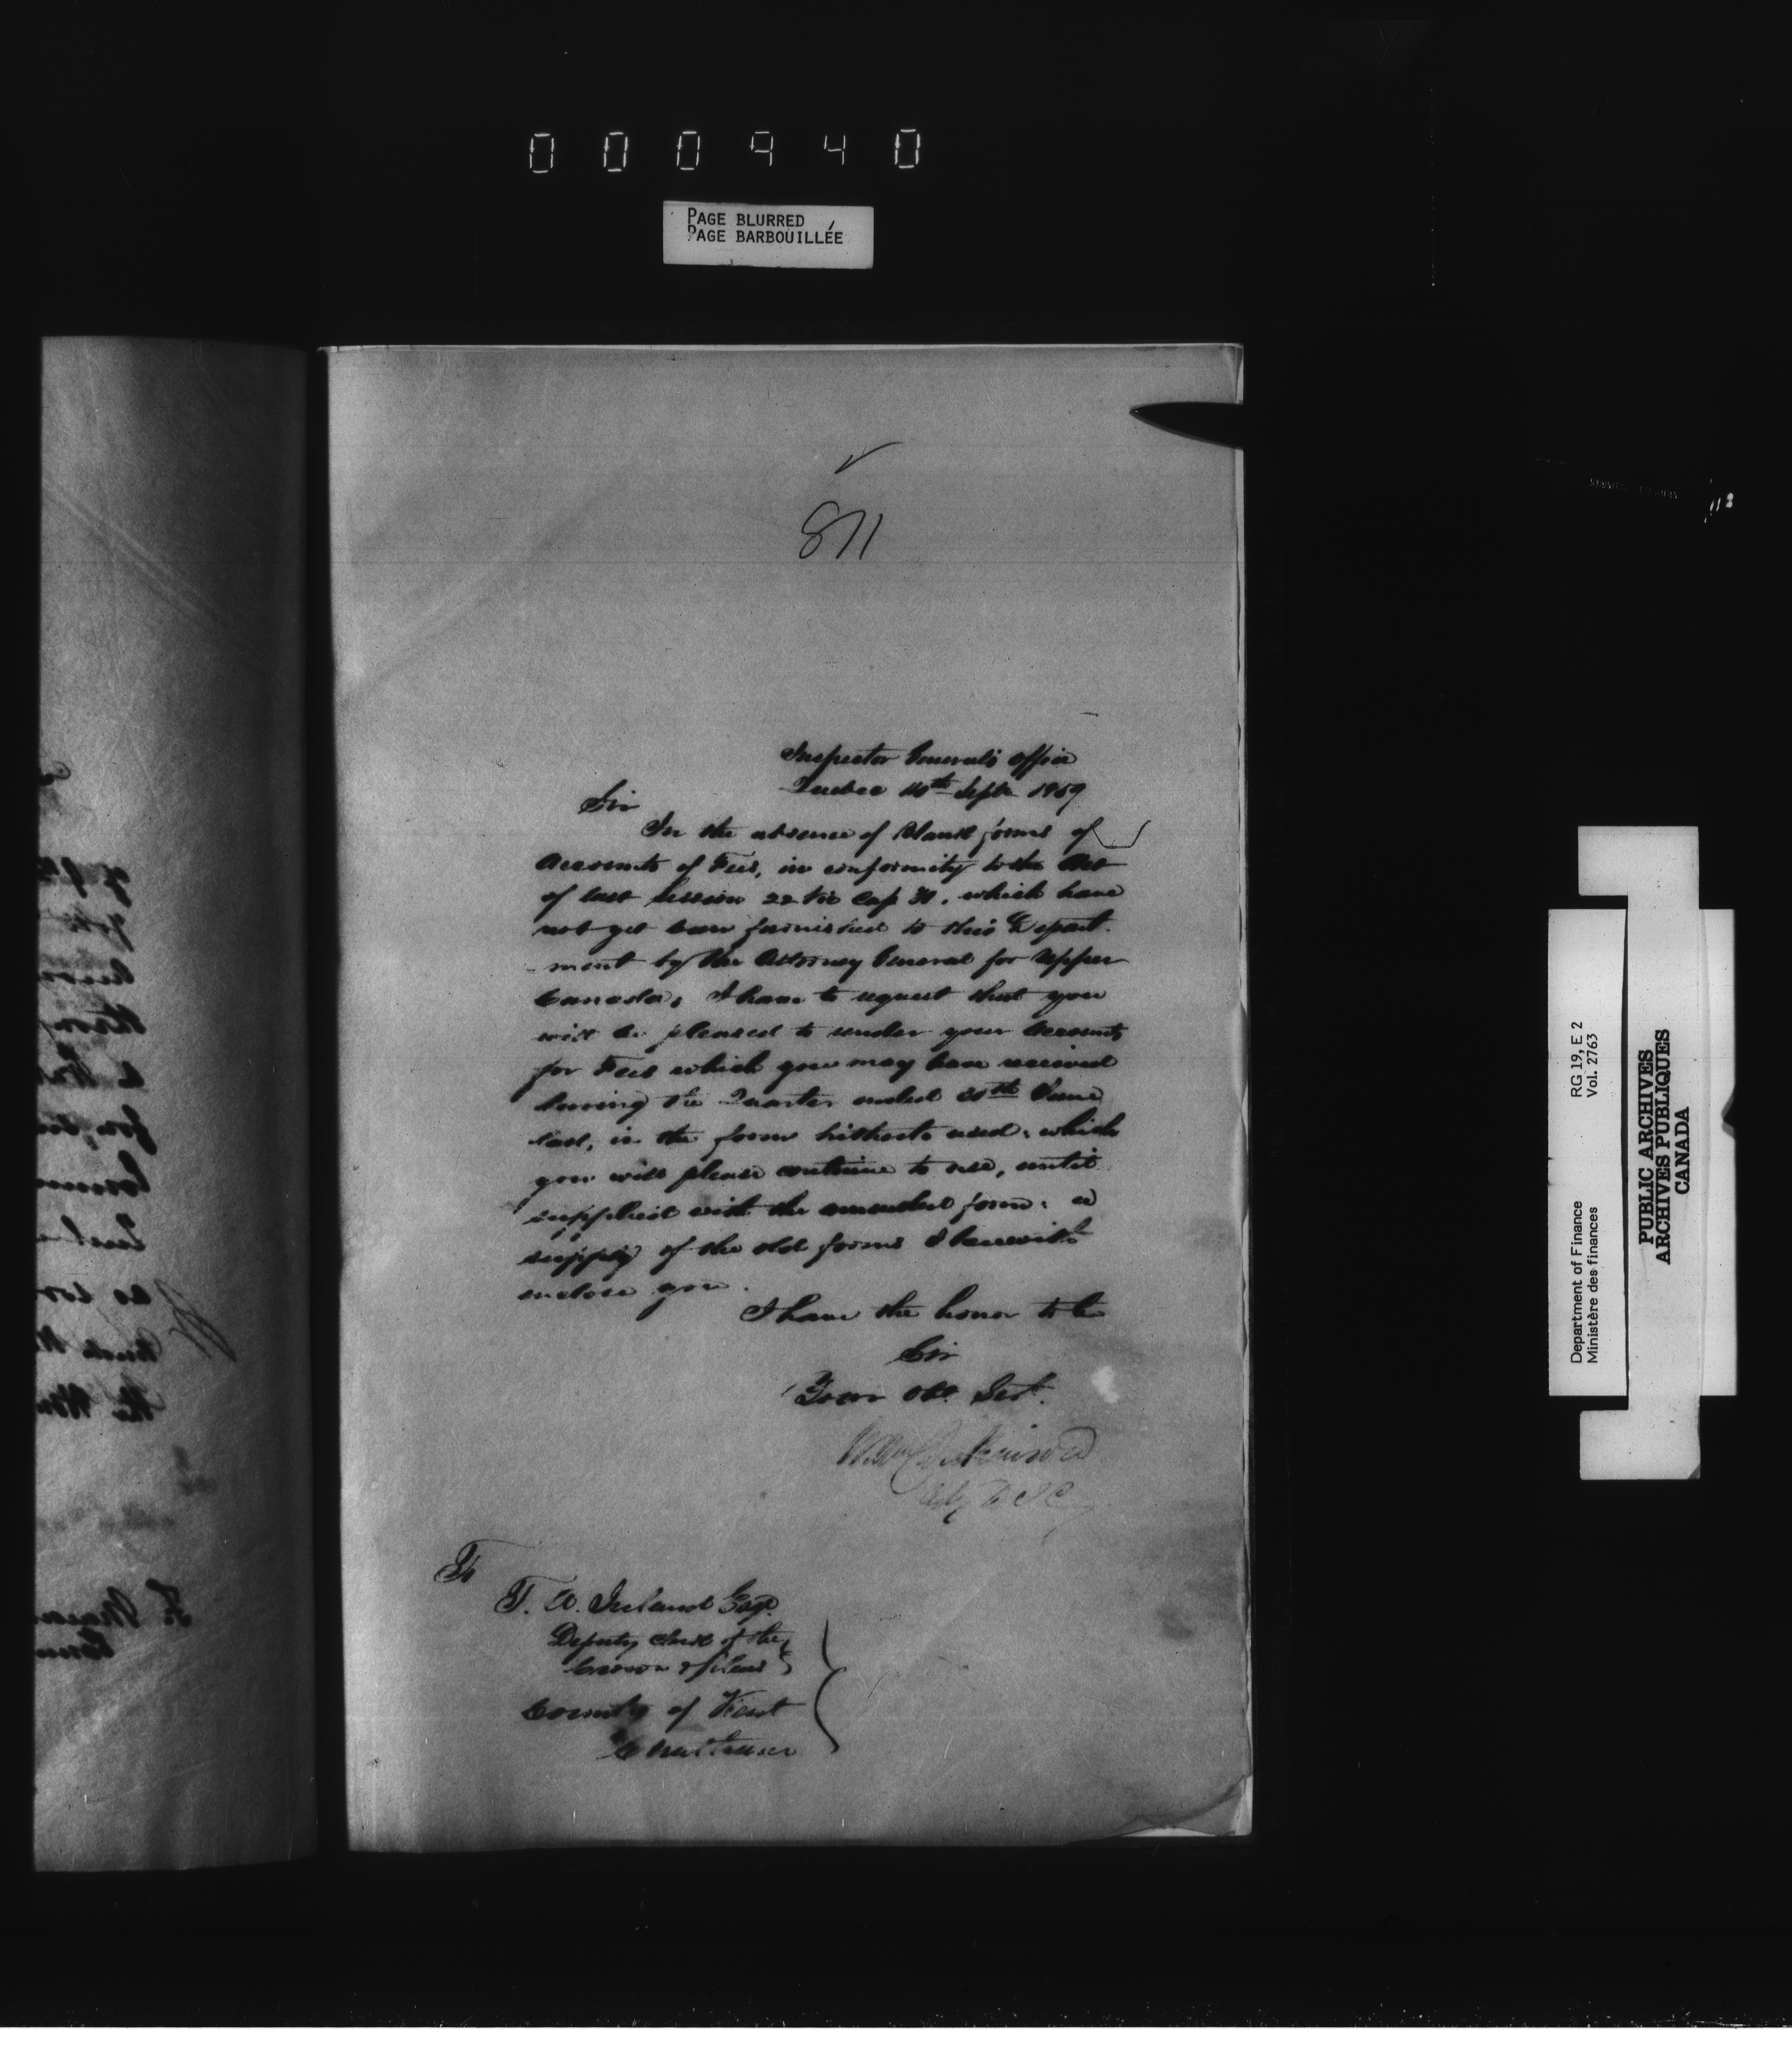 000940
PAGE BLURRED
PAGE BARBOUILLÉE
811
Inspector General's Office
Quebec 10th Sept 1859
Sir
In the absence of blank forms of
Accounts of Fees, in conformity to the Act
of last Session 22 Vic Cap which have
not yet been furnished to this Depart-
ment by the Attorney General for Upper
Canada, I have to request that you
will be pleased to render your Accounts
for Fees which you may have received
during the Quarter ended 30th June
last, in the form hitherto used, which
you will please continue to use, until
supplied with the amended form. a
supply of the old forms I herewith
enclose you.
I have the honor to be
Sir
Your Obt. Servt.
To
T. A. Ireland Esqr.
Deputy Clerk of the
Crown & Pleas
County of Kent
Chatham
RG 19, E 2
Vol. 2763
Department of Finance
Ministère des finances
PUBLIC ARCHIVES
ARCHIVES PUBLIQUES
CANADA